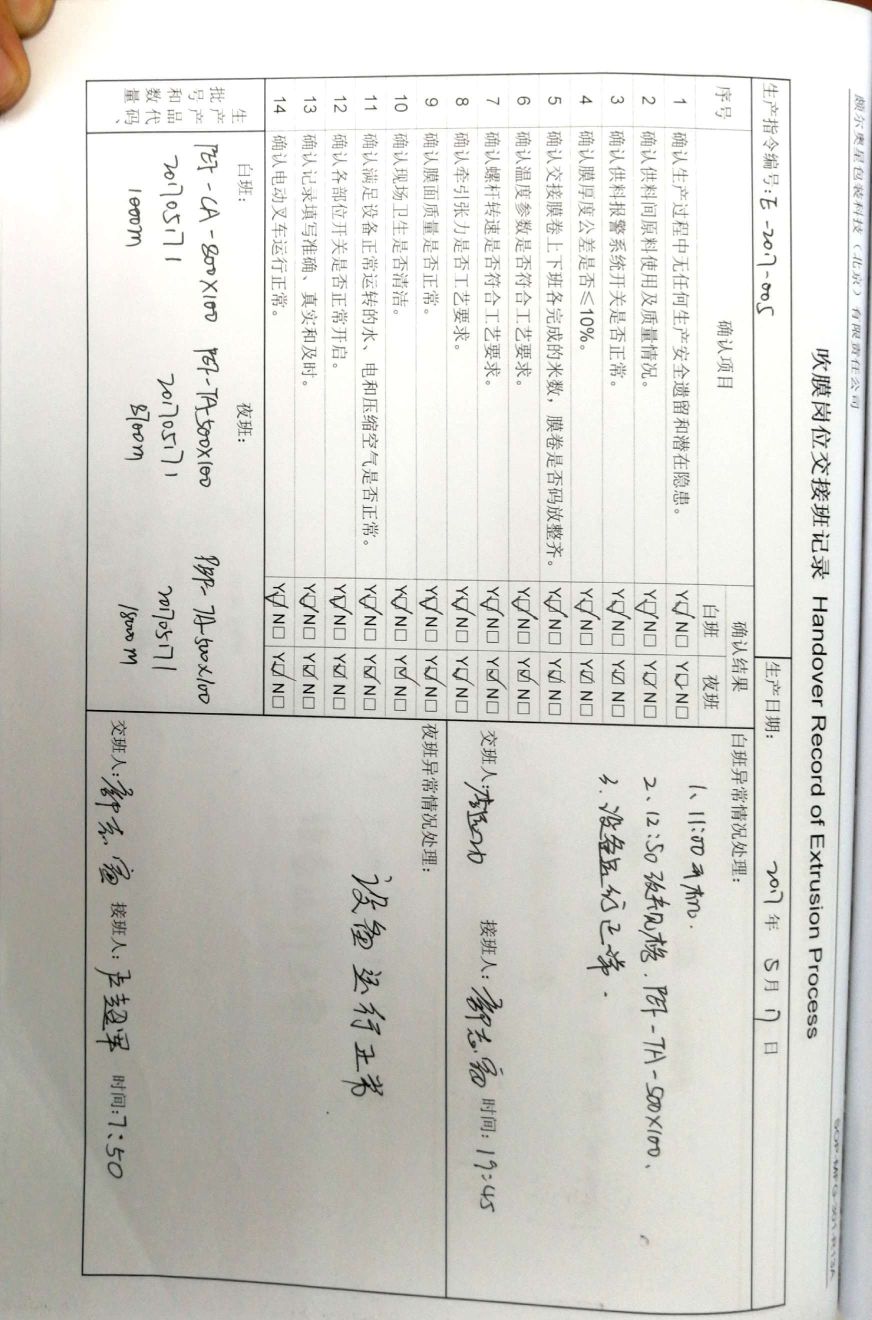 颇尔奥星包装科技（北京）有限责任公司
SOP-MFG-301-R13A
吹膜岗位交接班记录 Handover Record of Extrusion Process
生产指令编号:E-2017-005 生产日期: 2017 年 5 月 17 日
序号 确认项目 确认结果
白班 夜班
1 确认生产过程中无任何生产安全遗留和潜在隐患。 Y☑N□ Y☑N□
2 确认供料间原料使用及质量情况。 Y☑N□ Y☑N□
3 确认供料报警系统开关是否正常。 Y☑N□ Y☑N□
4 确认膜厚度公差是否≤10%。 Y☑N□ Y☑N□
5 确认交接膜卷上下班各完成的米数，膜卷是否码放整齐。 Y☑N□ Y☑N□
6 确认温度参数是否符合工艺要求。 Y☑N□ Y☑N□
7 确认螺杆转速是否符合工艺要求。 Y☑N□ Y☑N□
8 确认牵引张力是否工艺要求。 Y☑N□ Y☑N□
9 确认膜面质量是否正常。 Y☑N□ Y☑N□
10 确认现场卫生是否清洁。 Y☑N□ Y☑N□
11 确认满足设备正常运转的水、电和压缩空气是否正常。 Y☑N□ Y☑N□
12 确认各部位开关是否正常开启。 Y☑N□ Y☑N□
13 确认记录填写准确、真实和及时。 Y☑N□ Y☑N□
14 确认电动叉车运行正常。 Y☑N□ Y☑N□
生产产品代码、批号和数量
白班: 夜班:
PEF-CA-800X100 PEF-TA-500X100 TA-500X100
201705171 201705171 201705171
1000m 8700m 18000m
白班异常情况处理:
1、11:00开机.
2、12:50改规格.PEF-TA-500X100、
3、设备运行正常.
交班人: 接班人: 郭志 时间: 19:45
夜班异常情况处理:
设备运行正常
交班人: 郭志 接班人: 卢超军 时间:7:50